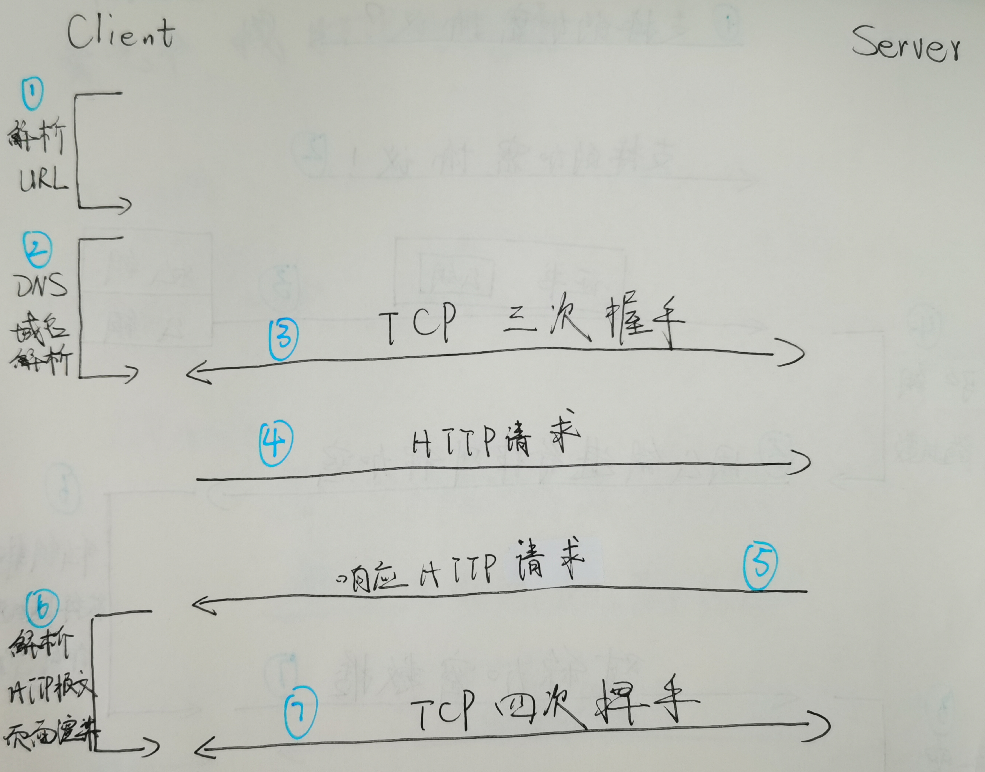 Client
Server
①
解析
URL
②
DNS
域名
解析
③
TCP 三次握手
④
HTTP请求
响应HTTP请求
⑤
⑥
解析
HTTP报文
页面渲染
⑦
TCP 四次挥手